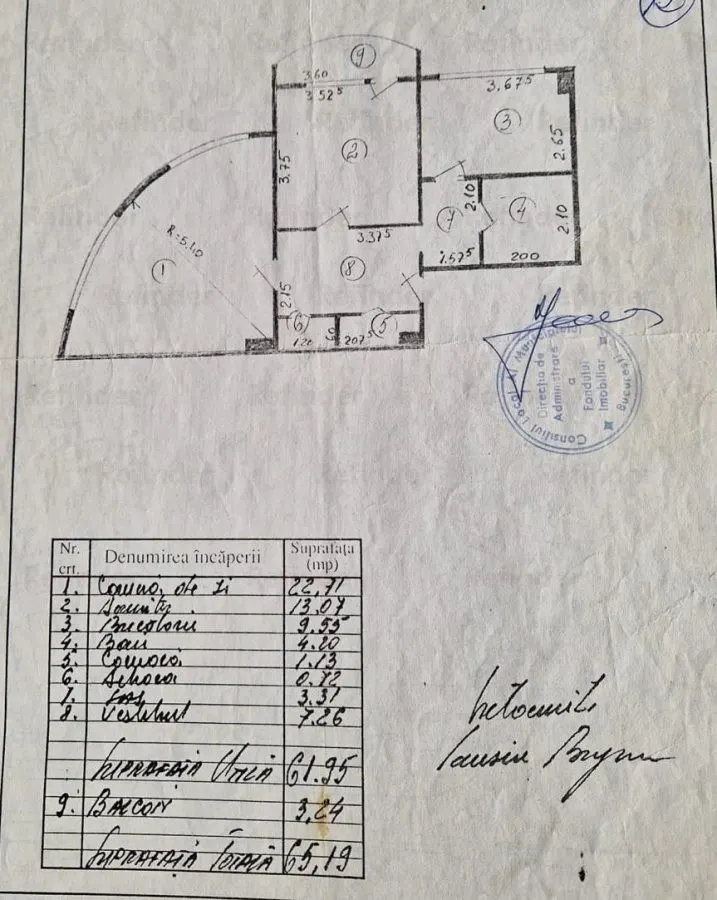 9
3.60
3.52⁵
3.67⁵
3
2.65
2
3.75
R=5.40
1
2.10
7
4
2.10
3.37⁵
1.57⁵
200
8
2.15
6
5
1.20
60
207⁵
Consiliul Local al Municipiului
București
Direcția de
Administrare
a
Fondului
Imobiliar
Nr. crt. Denumirea încăperii Suprafața (mp)
1. Cameră de zi 22,71
2. Dormitor 13,07
3. Bucătărie 9.55
4. Baie 4.20
5. Cămară 1.13
6. Debara 0.72
7. SAS 3.31
8. Vestibul 7.26
SUPRAFAȚĂ UTILĂ 61.95
9. BALCON 3,24
SUPRAFAȚĂ TOTALĂ 65,19